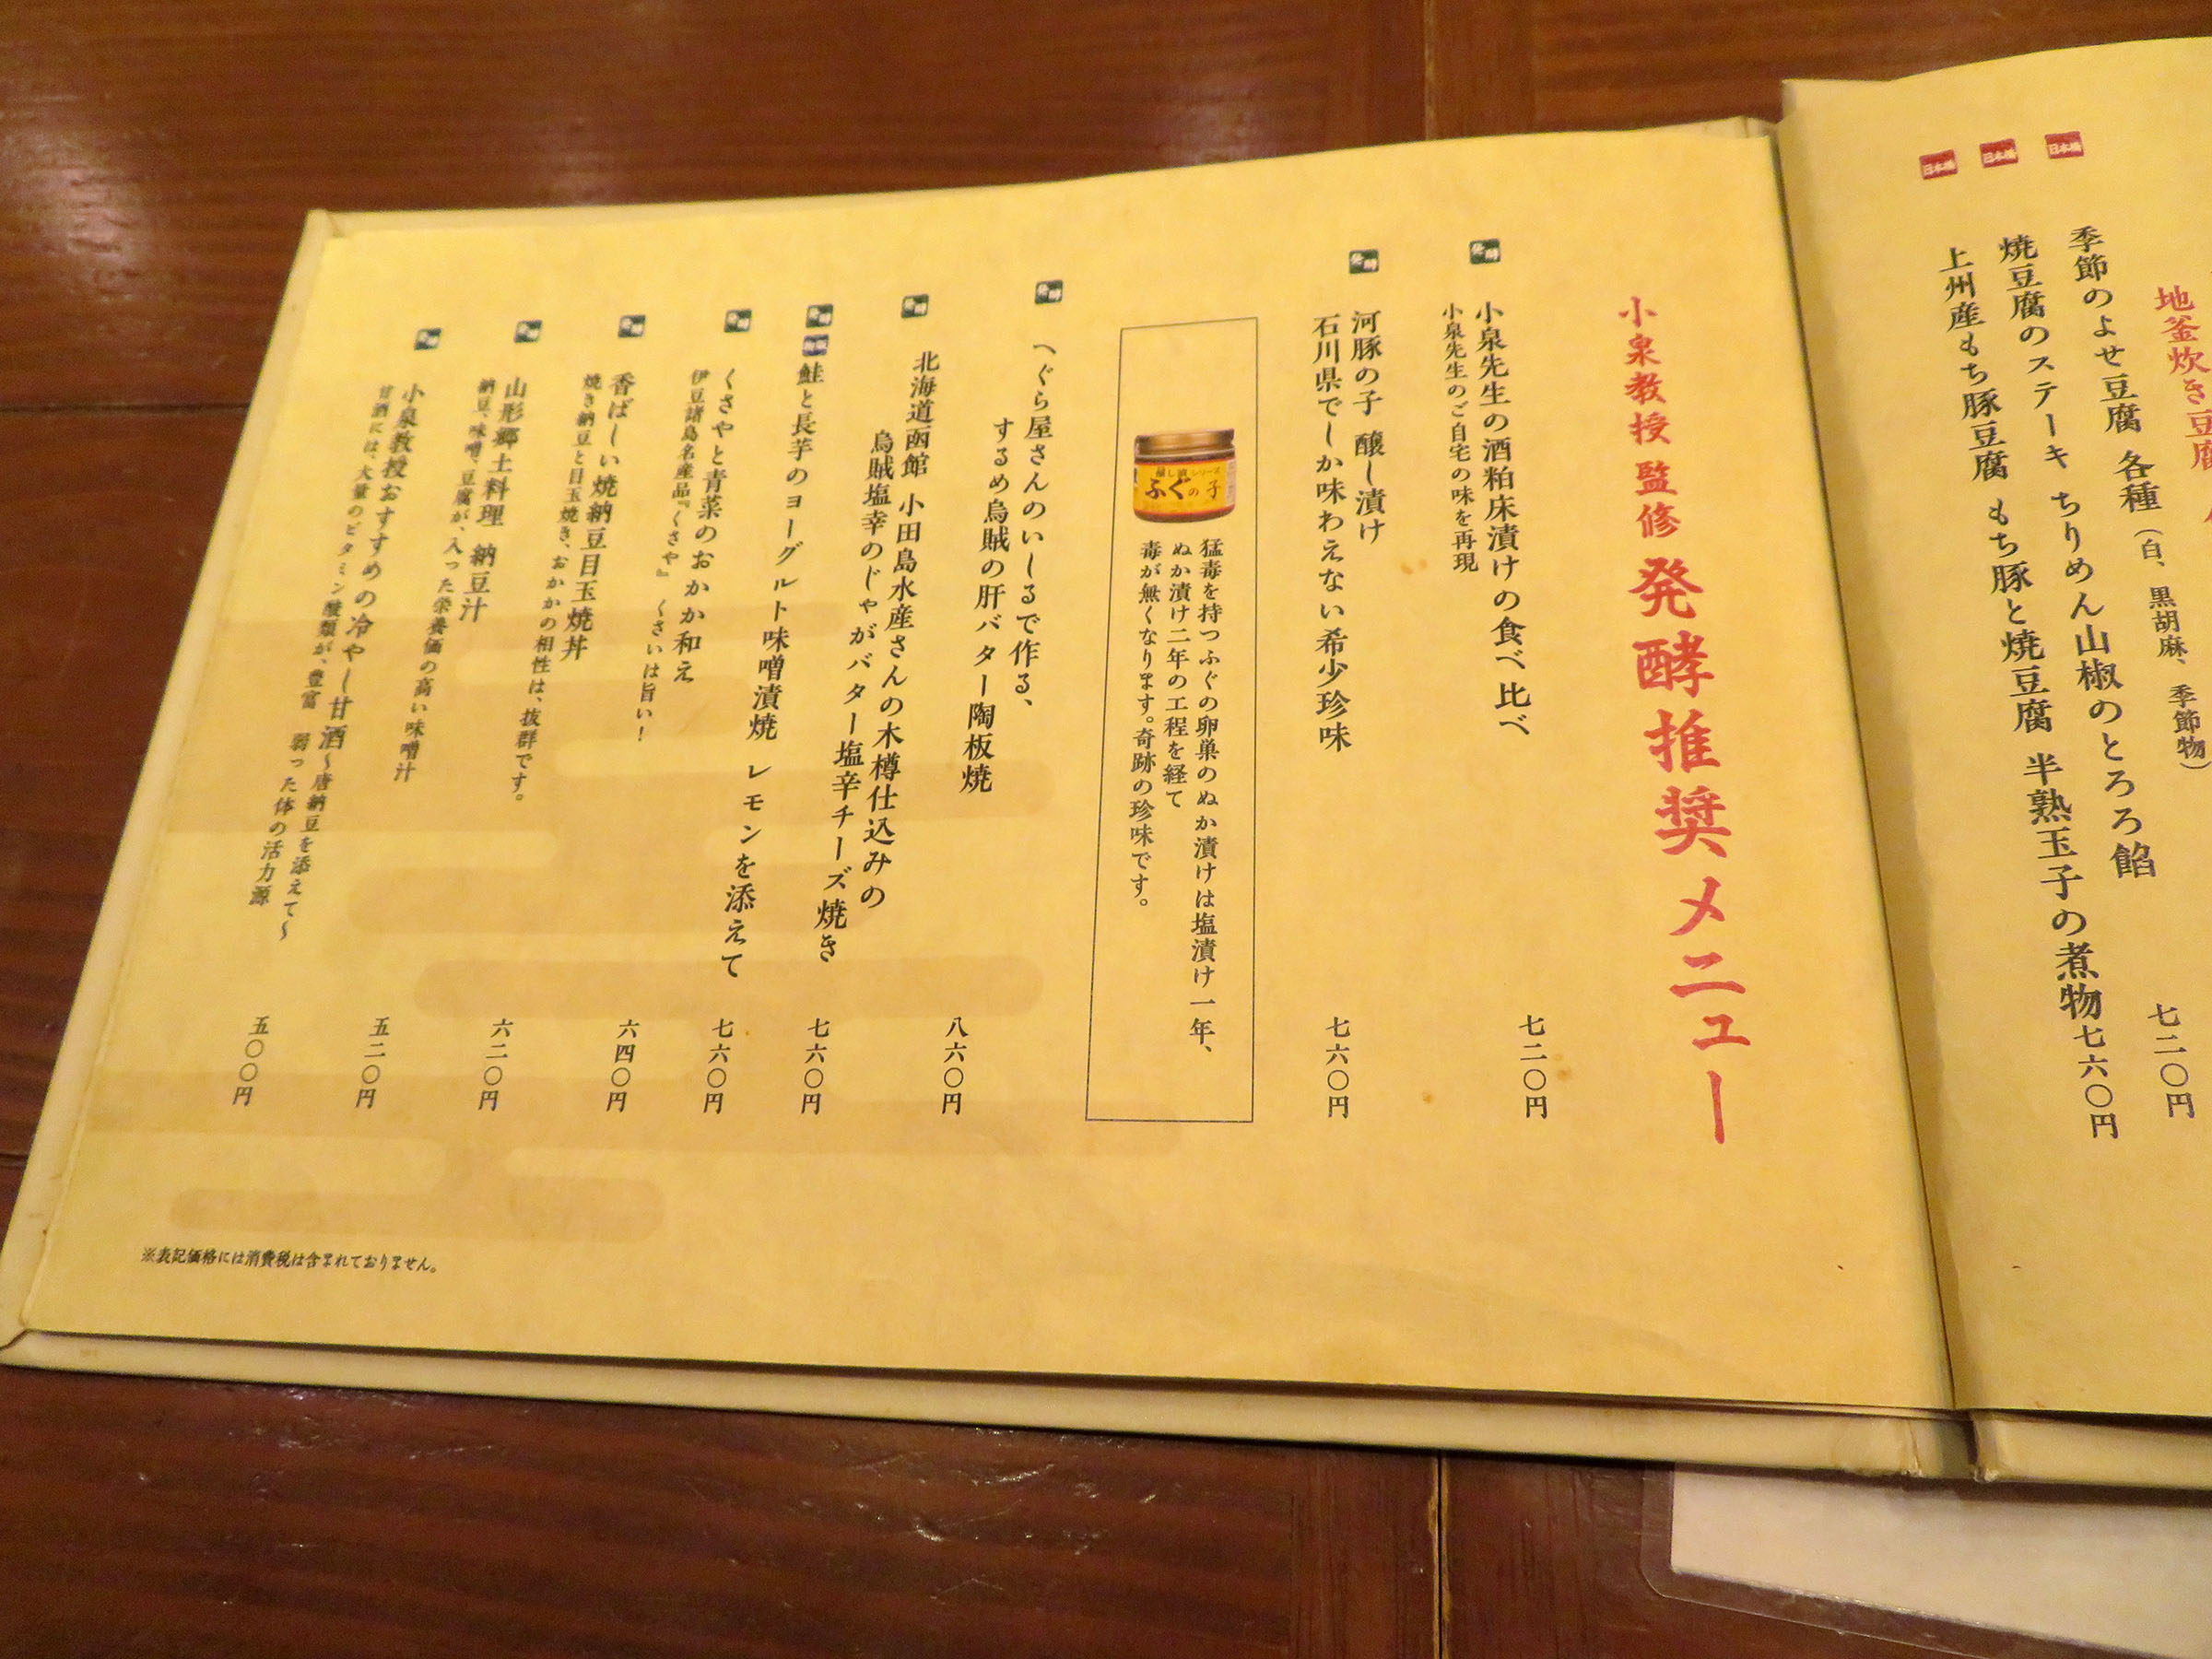 地釜炊き豆腐
日本橋
季節のよせ豆腐 各種（白、黒胡麻、季節物）
七二〇円
日本橋
焼豆腐のステーキ ちりめん山椒のとろろ餡
七六〇円
日本橋
上州産もち豚豆腐 もち豚と焼豆腐 半熟玉子の煮物
小泉教授 監修 発酵推奨メニュー
発酵
小泉先生の酒粕床漬けの食べ比べ
七二〇円
小泉先生のご自宅の味を再現
発酵
河豚の子 醸し漬け
石川県でしか味わえない希少珍味
七六〇円
醸し漬シリーズ
ふぐの子
猛毒を持つふぐの卵巣のぬか漬けは塩漬け一年、
ぬか漬け二年の工程を経て
毒が無くなります。奇跡の珍味です。
発酵
へぐら屋さんのいしるで作る、
するめ烏賊の肝バター陶板焼
八六〇円
発酵
北海道函館 小田島水産さんの木樽仕込みの
烏賊塩幸のじゃがバター塩辛チーズ焼き
七六〇円
発酵
鮭と長芋のヨーグルト味噌漬焼 レモンを添えて
七六〇円
発酵
くさやと青菜のおかか和え
六四〇円
伊豆諸島名産品『くさや』くさいは旨い！
発酵
香ばしい焼納豆目玉焼丼
六二〇円
焼き納豆と目玉焼き、おかかの相性は、抜群です。
発酵
山形郷土料理 納豆汁
五二〇円
納豆、味噌、豆腐が、入った栄養価の高い味噌汁
発酵
小泉教授おすすめの冷やし甘酒～唐納豆を添えて～
五〇〇円
甘酒には、大量のビタミン酸類が、豊富 弱った体の活力源
※表記価格には消費税は含まれておりません。